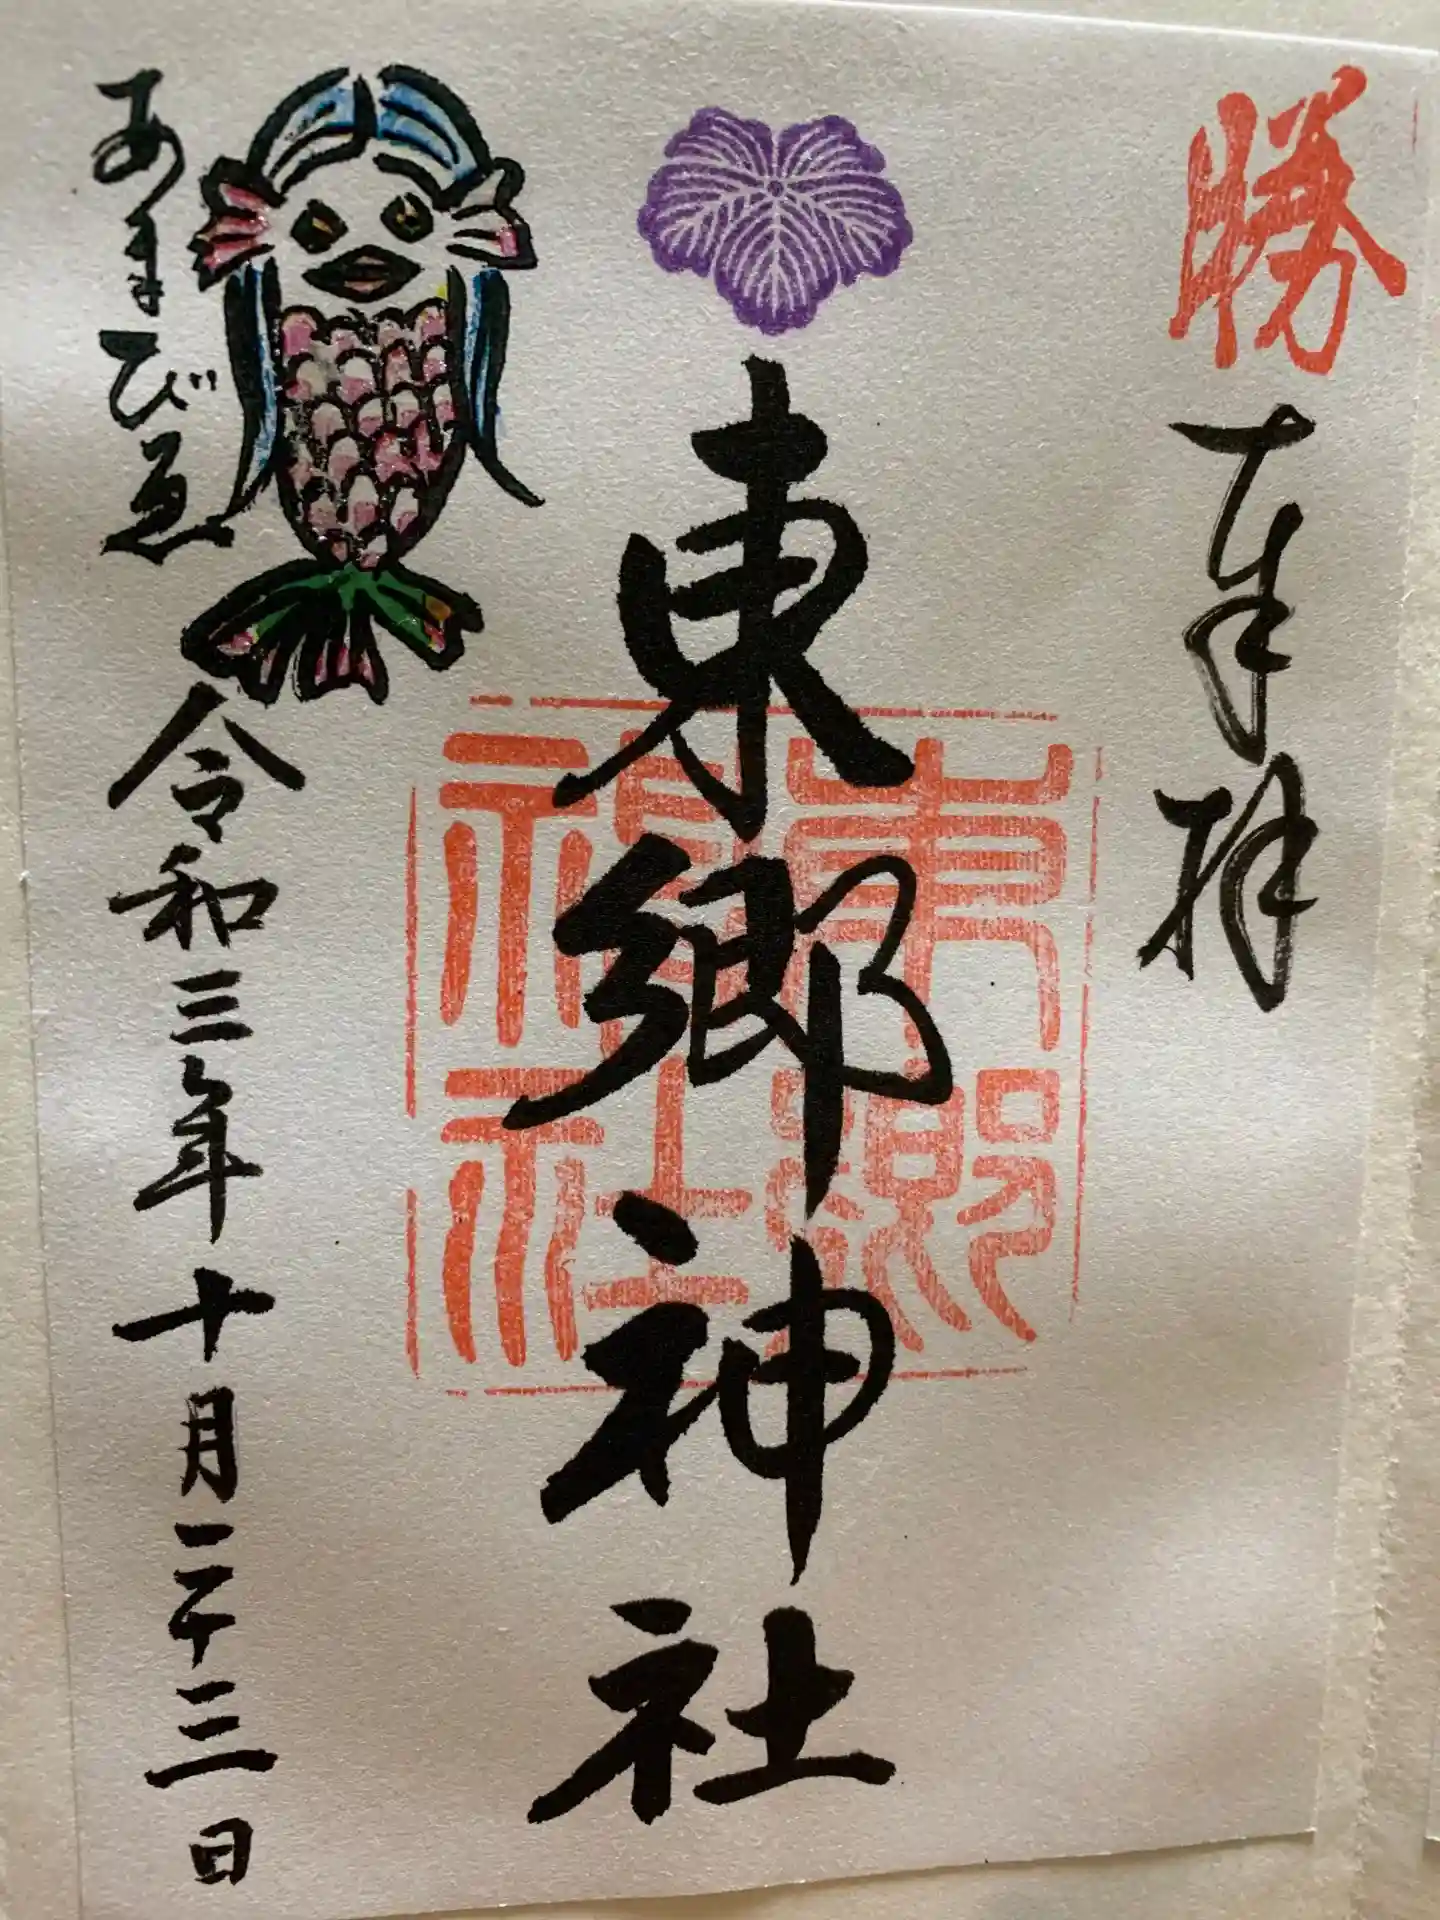 勝
奉拝
東郷神社
東郷
神社
あまびゑ
令和三年十月二十三日